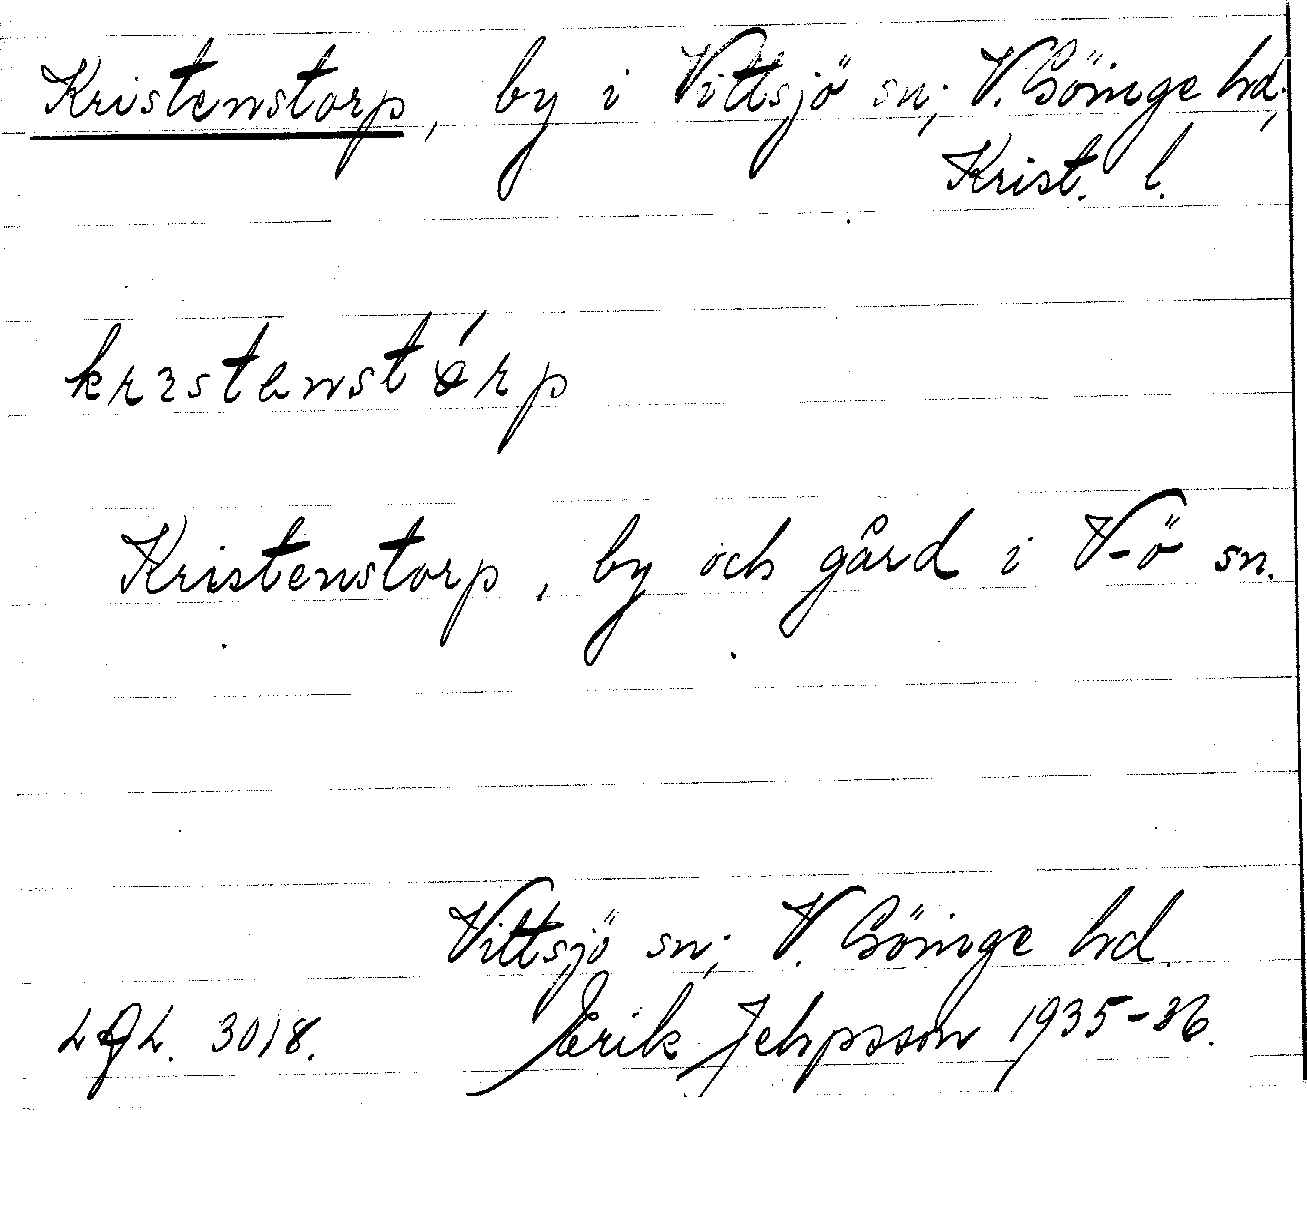 Kristenstorp, by i Vittsjö sn; V. Göinge hd,
Krist. l.
krɪstenstǿrp
Kristenstorp, by och gård i V-ö sn.
Vittsjö sn; V. Göinge hd.
3018. Erik Jeppsson 1935-36.